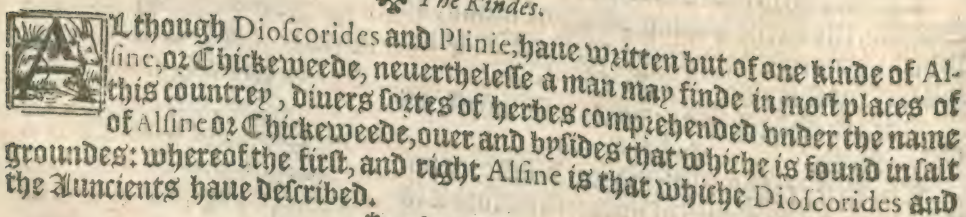 The Kindes.
ALthough Dioſcorides and Plinie, haue written but of one kinde of Al-
ſine, oꝛ Chickeweede, neuertheleſſe a man may finde in moſt places of
this countrey, diuers ſoꝛtes of herbes compꝛehended vnder the name
of Alſine oꝛ Chickeweede, ouer and byſides that whiche is found in ſalt
groundes: whereof the firſt, and right Alſine is that whiche Dioſcorides and
the Auncients haue deſcribed.